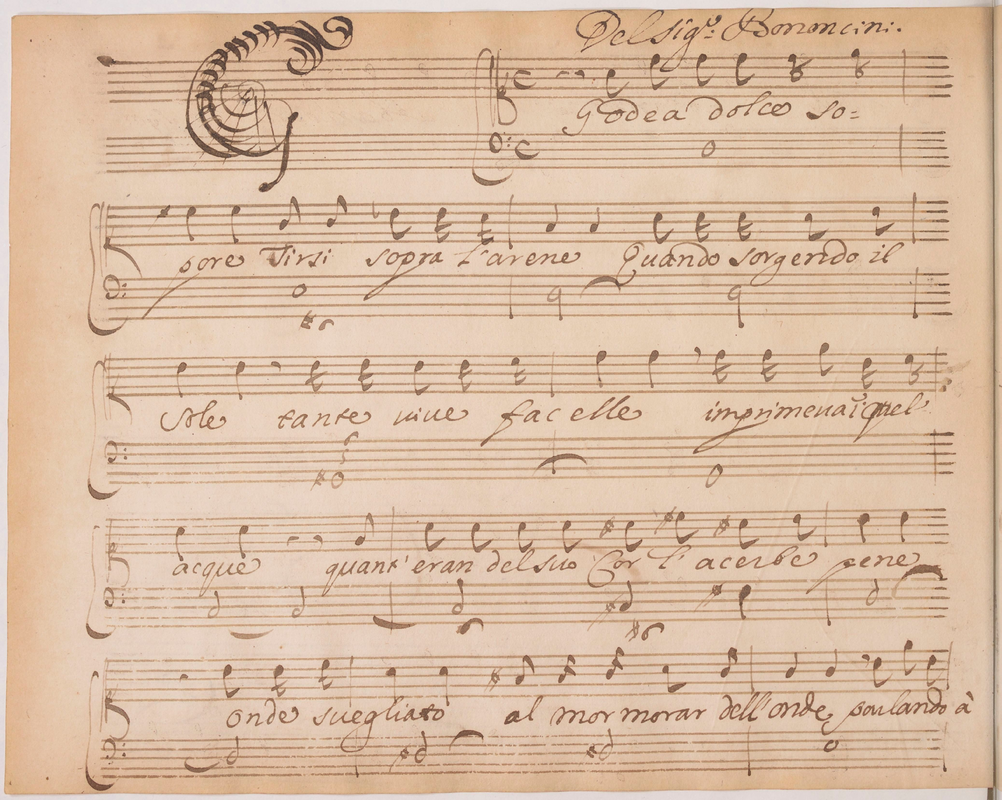 Del sig.r: Bononcini:
G
Godea dolce so=
pore Tirsi sopra l'arene Quando sorgendo il
Sole tante vive facelle imprimeua i quel
acque quant'eran del suo Cor l'acerbe pene
onde suegliato al mormorar dell'onde parlando à